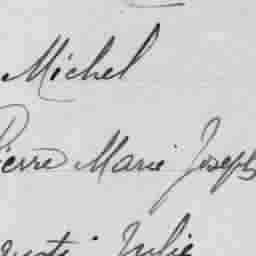 Michel
Pierre Marie Joseph
Julie